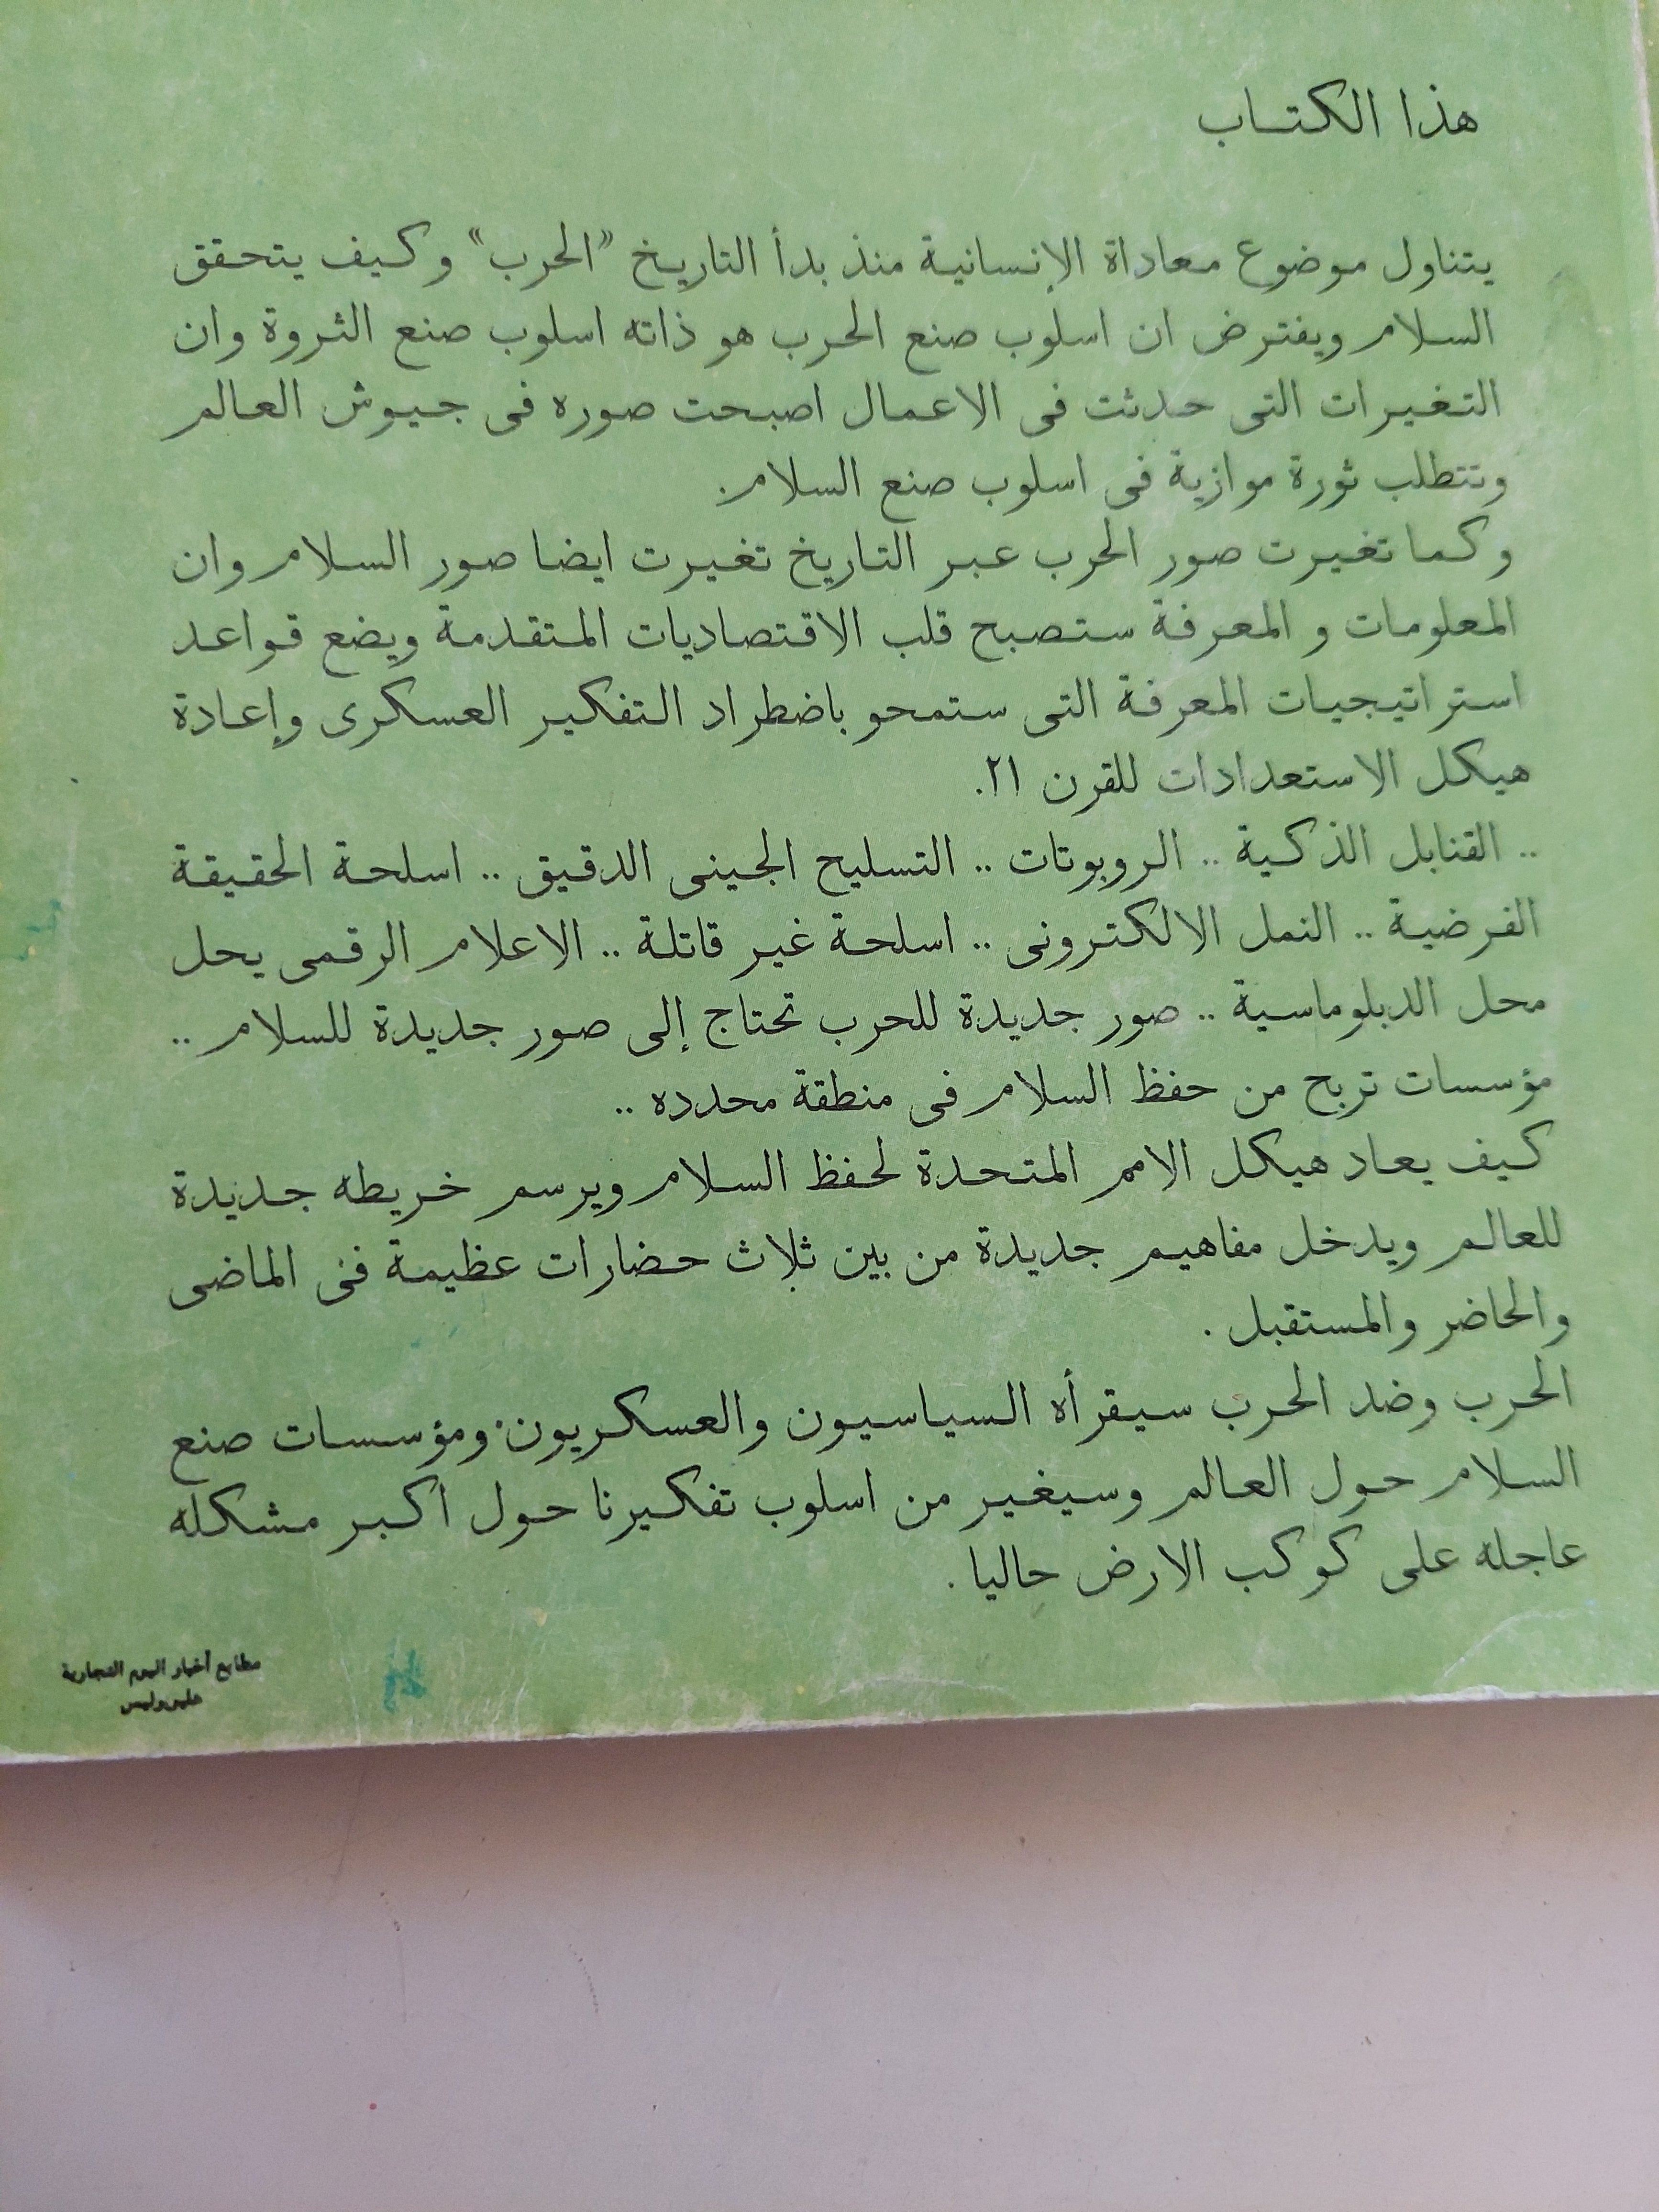 هذا الكتاب
يتناول موضوع معاداة الإنسانية منذ بدأ التاريخ "الحرب" وكيف يتحقق
السلام ويفترض ان اسلوب صنع الحرب هو ذاته اسلوب صنع الثروة وان
التغيرات التى حدثت فى الاعمال اصبحت صوره فى جيوش العالم
وتتطلب ثورة موازية فى اسلوب صنع السلام.
وكما تغيرت صور الحرب عبر التاريخ تغيرت ايضا صور السلام وان
المعلومات و المعرفة ستصبح قلب الاقتصاديات المتقدمة ويضع قواعد
استراتيجيات المعرفة التى ستمحو باضطراد التفكير العسكرى وإعادة
هيكل الاستعدادات للقرن ٢١.
.. القنابل الذكية .. الروبوتات .. التسليح الجينى الدقيق .. اسلحة الحقيقة
الفرضية .. النمل الالكترونى .. اسلحة غير قاتلة .. الاعلام الرقمى يحل
محل الدبلوماسية .. صور جديدة للحرب تحتاج إلى صور جديدة للسلام ..
مؤسسات تربح من حفظ السلام فى منطقة محدده ..
كيف يعاد هيكل الامم المتحدة لحفظ السلام ويرسم خريطه جديدة
للعالم ويدخل مفاهيم جديدة من بين ثلاث حضارات عظيمة فى الماضى
والحاضر والمستقبل .
الحرب وضد الحرب سيقرأه السياسيون والعسكريون ومؤسسات صنع
السلام حول العالم وسيغير من اسلوب تفكيرنا حول اكبر مشكله
عاجله على كوكب الارض حاليا .
مطابع أخبار اليوم التجارية